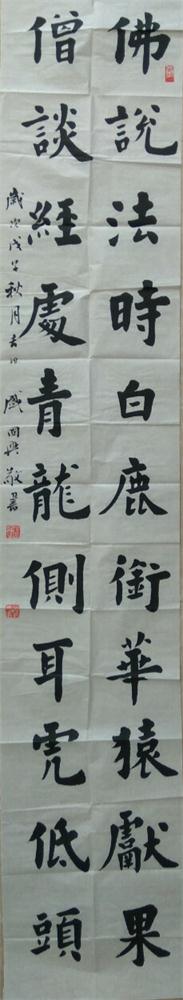 佛說法時白鹿銜華猿獻果
僧談經處青龍側耳虎低頭
歲次戊子秋月吉日 盛回興敬書